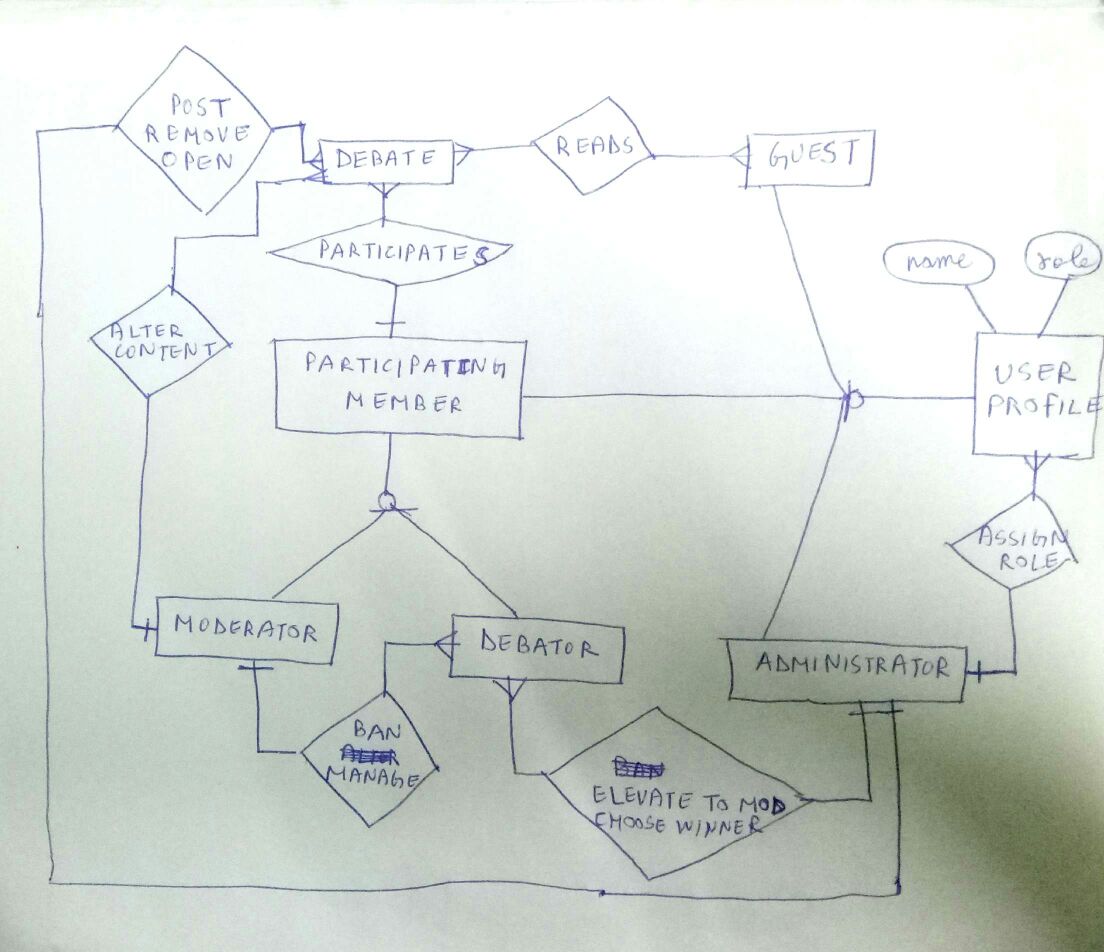 POST
REMOVE
OPEN
DEBATE
READS
GUEST
PARTICIPATES
name
role
ALTER
CONTENT
PARTICIPATING
MEMBER
USER
PROFILE
ASSIGN
ROLE
MODERATOR
DEBATOR
ADMINISTRATOR
BAN
MANAGE
ELEVATE TO MOD
CHOOSE WINNER